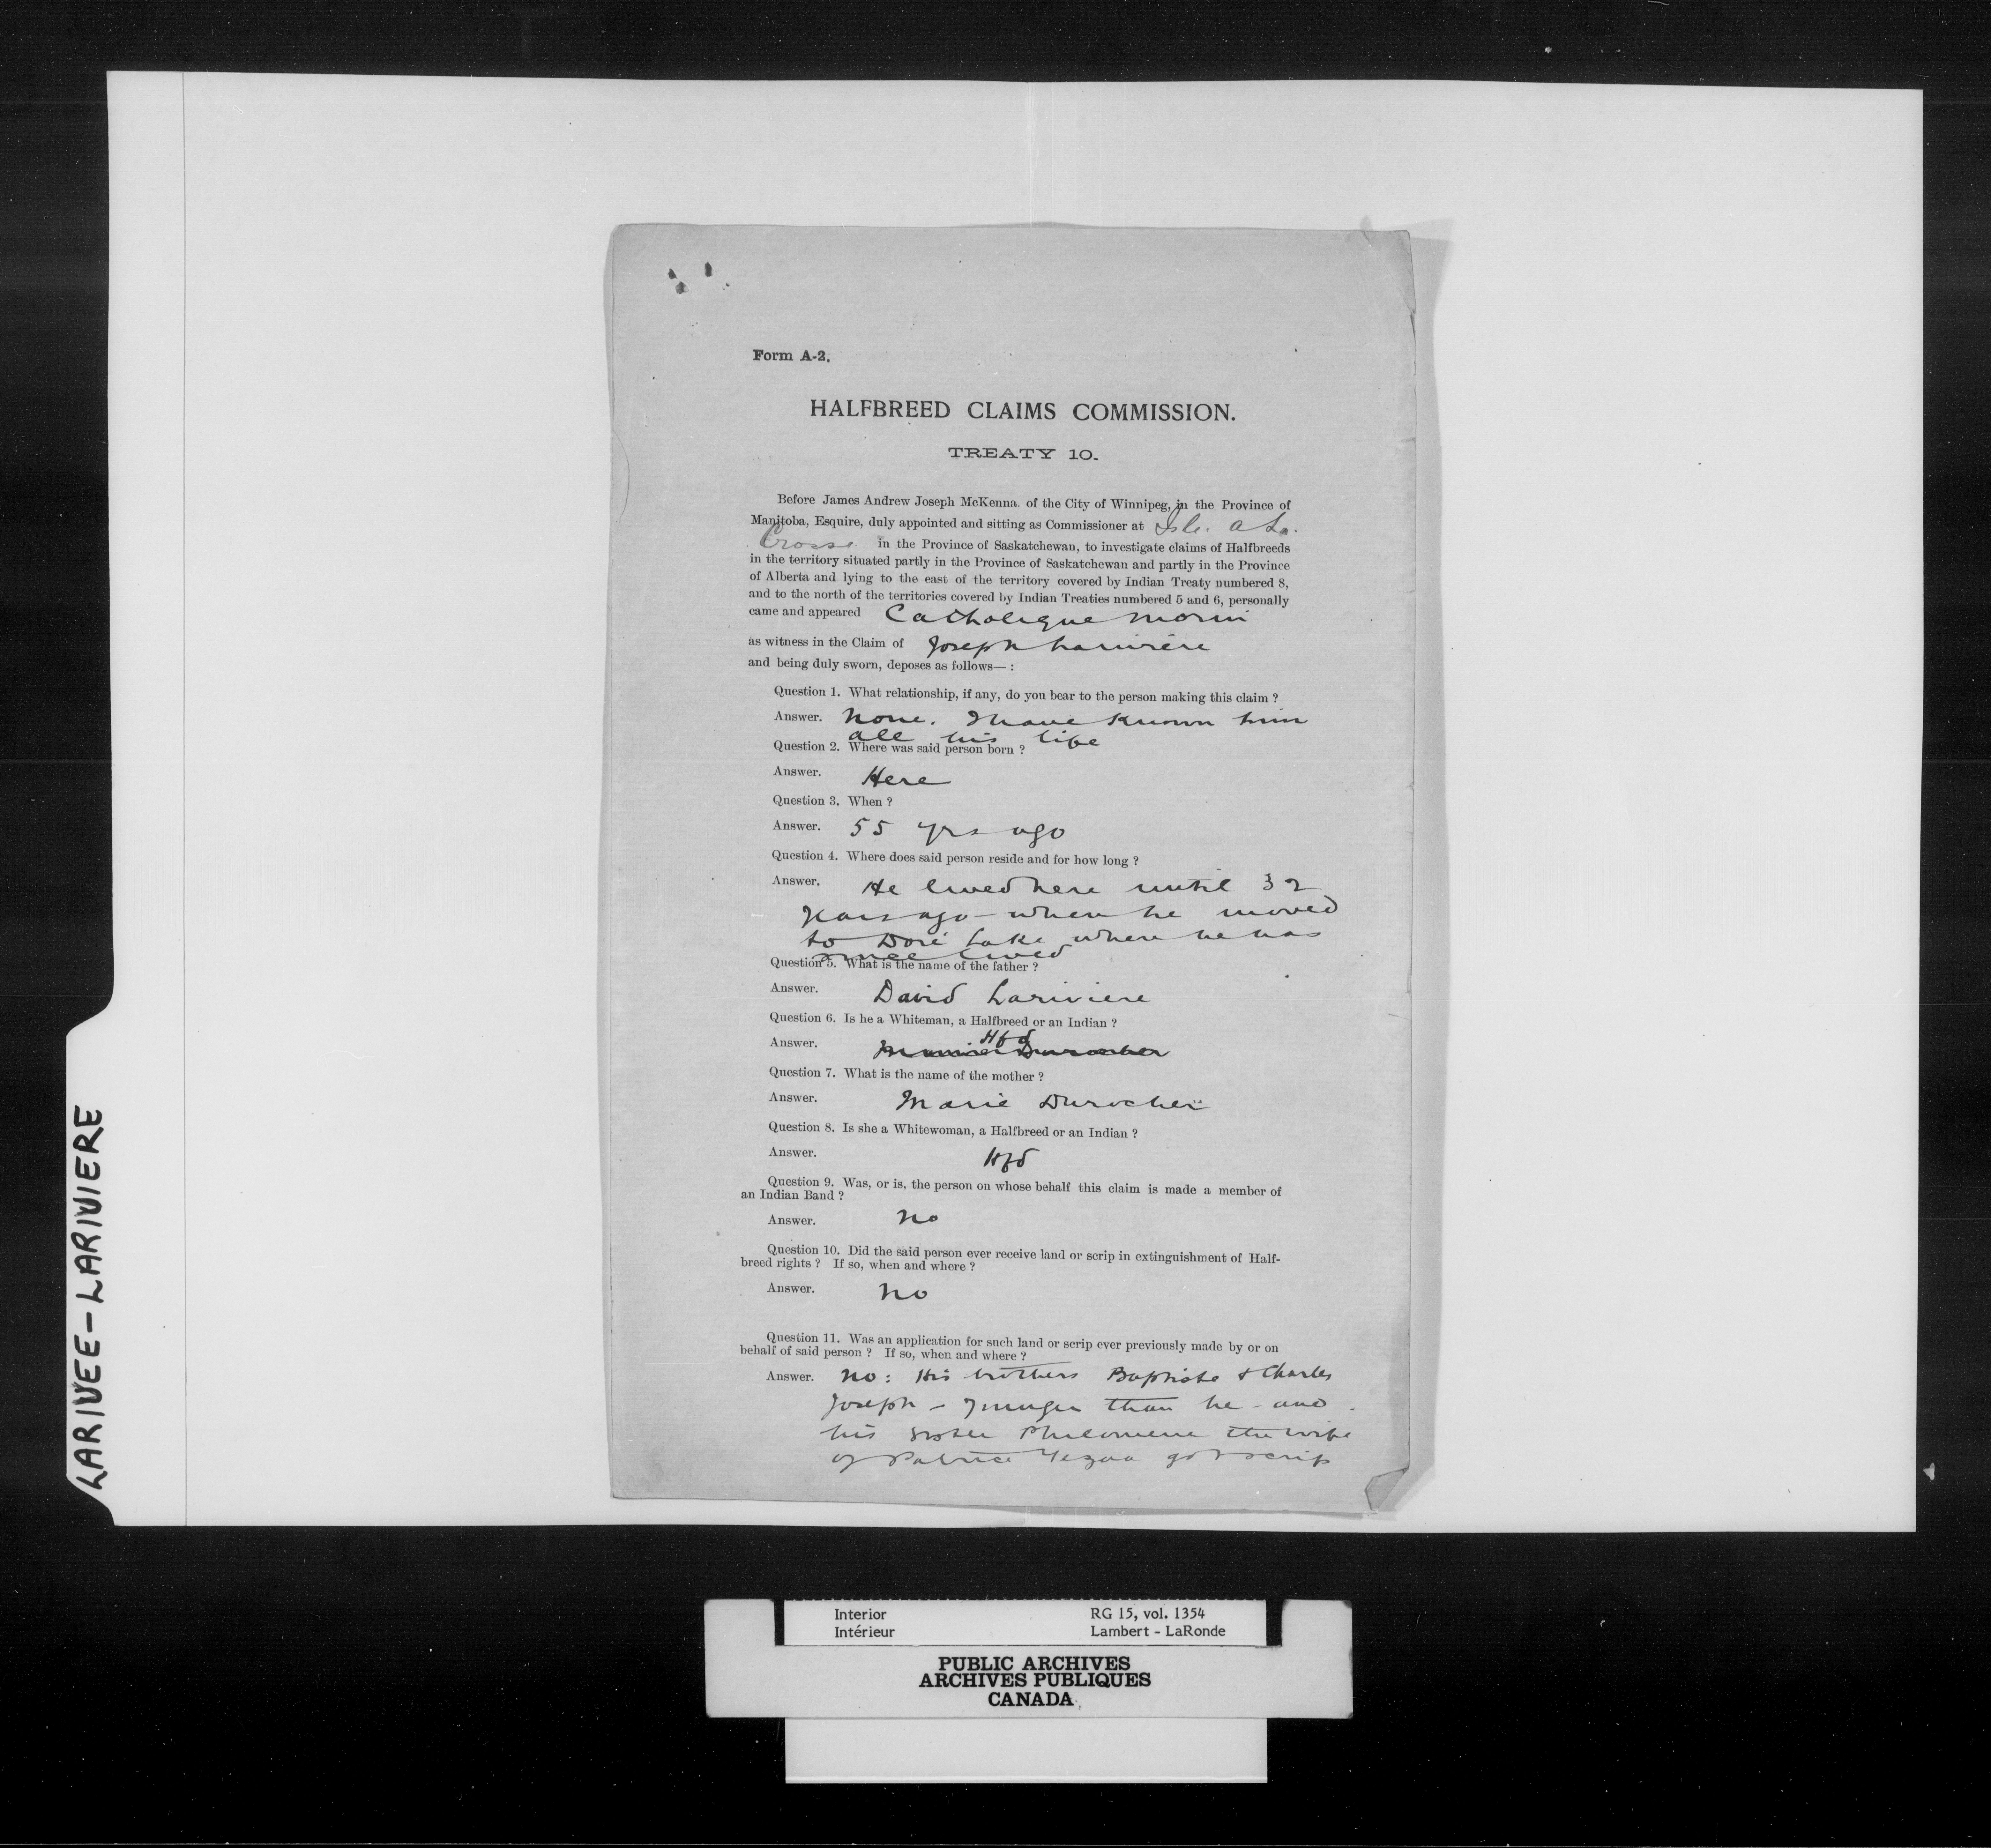 Form A-2.
HALFBREED CLAIMS COMMISSION.
TREATY 10.
Before James Andrew Joseph McKenna. of the City of Winnipeg, in the Province of
Manitoba, Esquire, duly appointed and sitting as Commissioner at Isle. a La.
Crosse in the Province of Saskatchewan, to investigate claims of Halfbreeds
in the territory situated partly in the Province of Saskatchewan and partly in the Province
of Alberta and lying to the east of the territory covered by Indian Treaty numbered 8,
and to the north of the territories covered by Indian Treaties numbered 5 and 6, personally
came and appeared Catholique Morin
as witness in the Claim of Joseph Lariviere
and being duly sworn, deposes as follows— :
Question 1. What relationship, if any, do you bear to the person making this claim ?
Answer. None. I have known him
all his life
Question 2. Where was said person born ?
Answer. Here
Question 3. When ?
Answer. 55 yrs ago
Question 4. Where does said person reside and for how long ?
Answer. He lived here until 32
years ago - when he moved
to Doré Lake where he has
since lived
Question 5. What is the name of the father ?
Answer. David Lariviere
Question 6. Is he a Whiteman, a Halfbreed or an Indian ?
Answer. Hfd
Question 7. What is the name of the mother ?
Answer. Marie Durocher
Question 8. Is she a Whitewoman, a Halfbreed or an Indian ?
Answer. Hfd
Question 9. Was, or is, the person on whose behalf this claim is made a member of
an Indian Band ?
Answer. No
Question 10. Did the said person ever receive land or scrip in extinguishment of Half-
breed rights ? If so, when and where ?
Answer. No
Question 11. Was an application for such land or scrip ever previously made by or on
behalf of said person ? If so, when and where ?
Answer. No: His brothers Baptiste & Charles
Joseph - younger than he - and
his sister Philomene the wife
of Patrice got scrip
LARIVEE-LARIVIERE
Interior RG 15, vol. 1354
Intérieur Lambert - LaRonde
PUBLIC ARCHIVES
ARCHIVES PUBLIQUES
CANADA